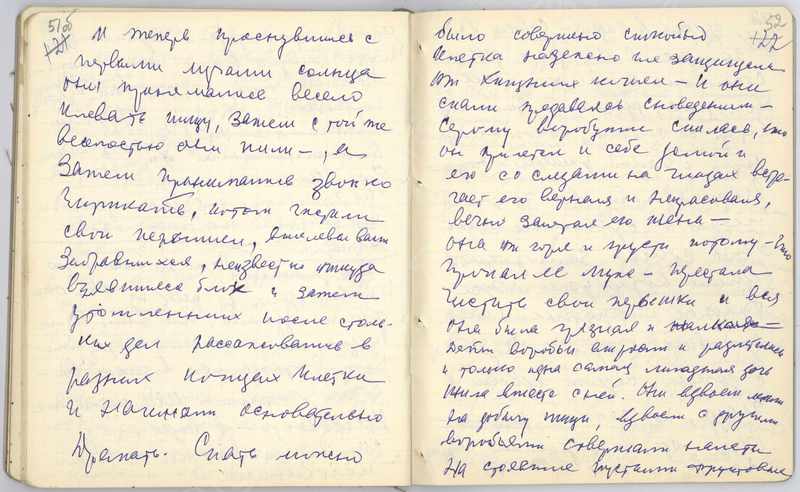 51об
+21
И теперь проснувшись с
первыми лучами солнца
они принимались весело
клевать пищу, затем с той же
веселостью они пили –, а
затем принимались звонко
чирикать, потом чистили
свои пёрышки, выклёвывали
забравшихся, неизвестно откуда
взявшихся блох и затем
утомлённые после столь-
ких дел рассаживались в
разных концах клетки
и начинали основательно
дремать. Спать можно
52
+22
было совершенно спокойно
клетка надежно их защищала
от хищных кошек – и они
спали предаваясь сновидениям –
Серому воробушке снилась, что
он прилетел к себе домой и
его со слезами на глазах встре-
чает его верная и
вечно занятая его жена –
она от горя и грусти потому – что
пропал ее муж – перестала
чистить свои перышки и вся
она была грязная и
Дети воробьи выросли и разлетелись
и только одна самая младшая дочь
жила вместе с ней. Они вдвоем
на добычу пищи, вдвоем с другими
воробьями совершали налеты
на стоявшие пустыми фруктовые